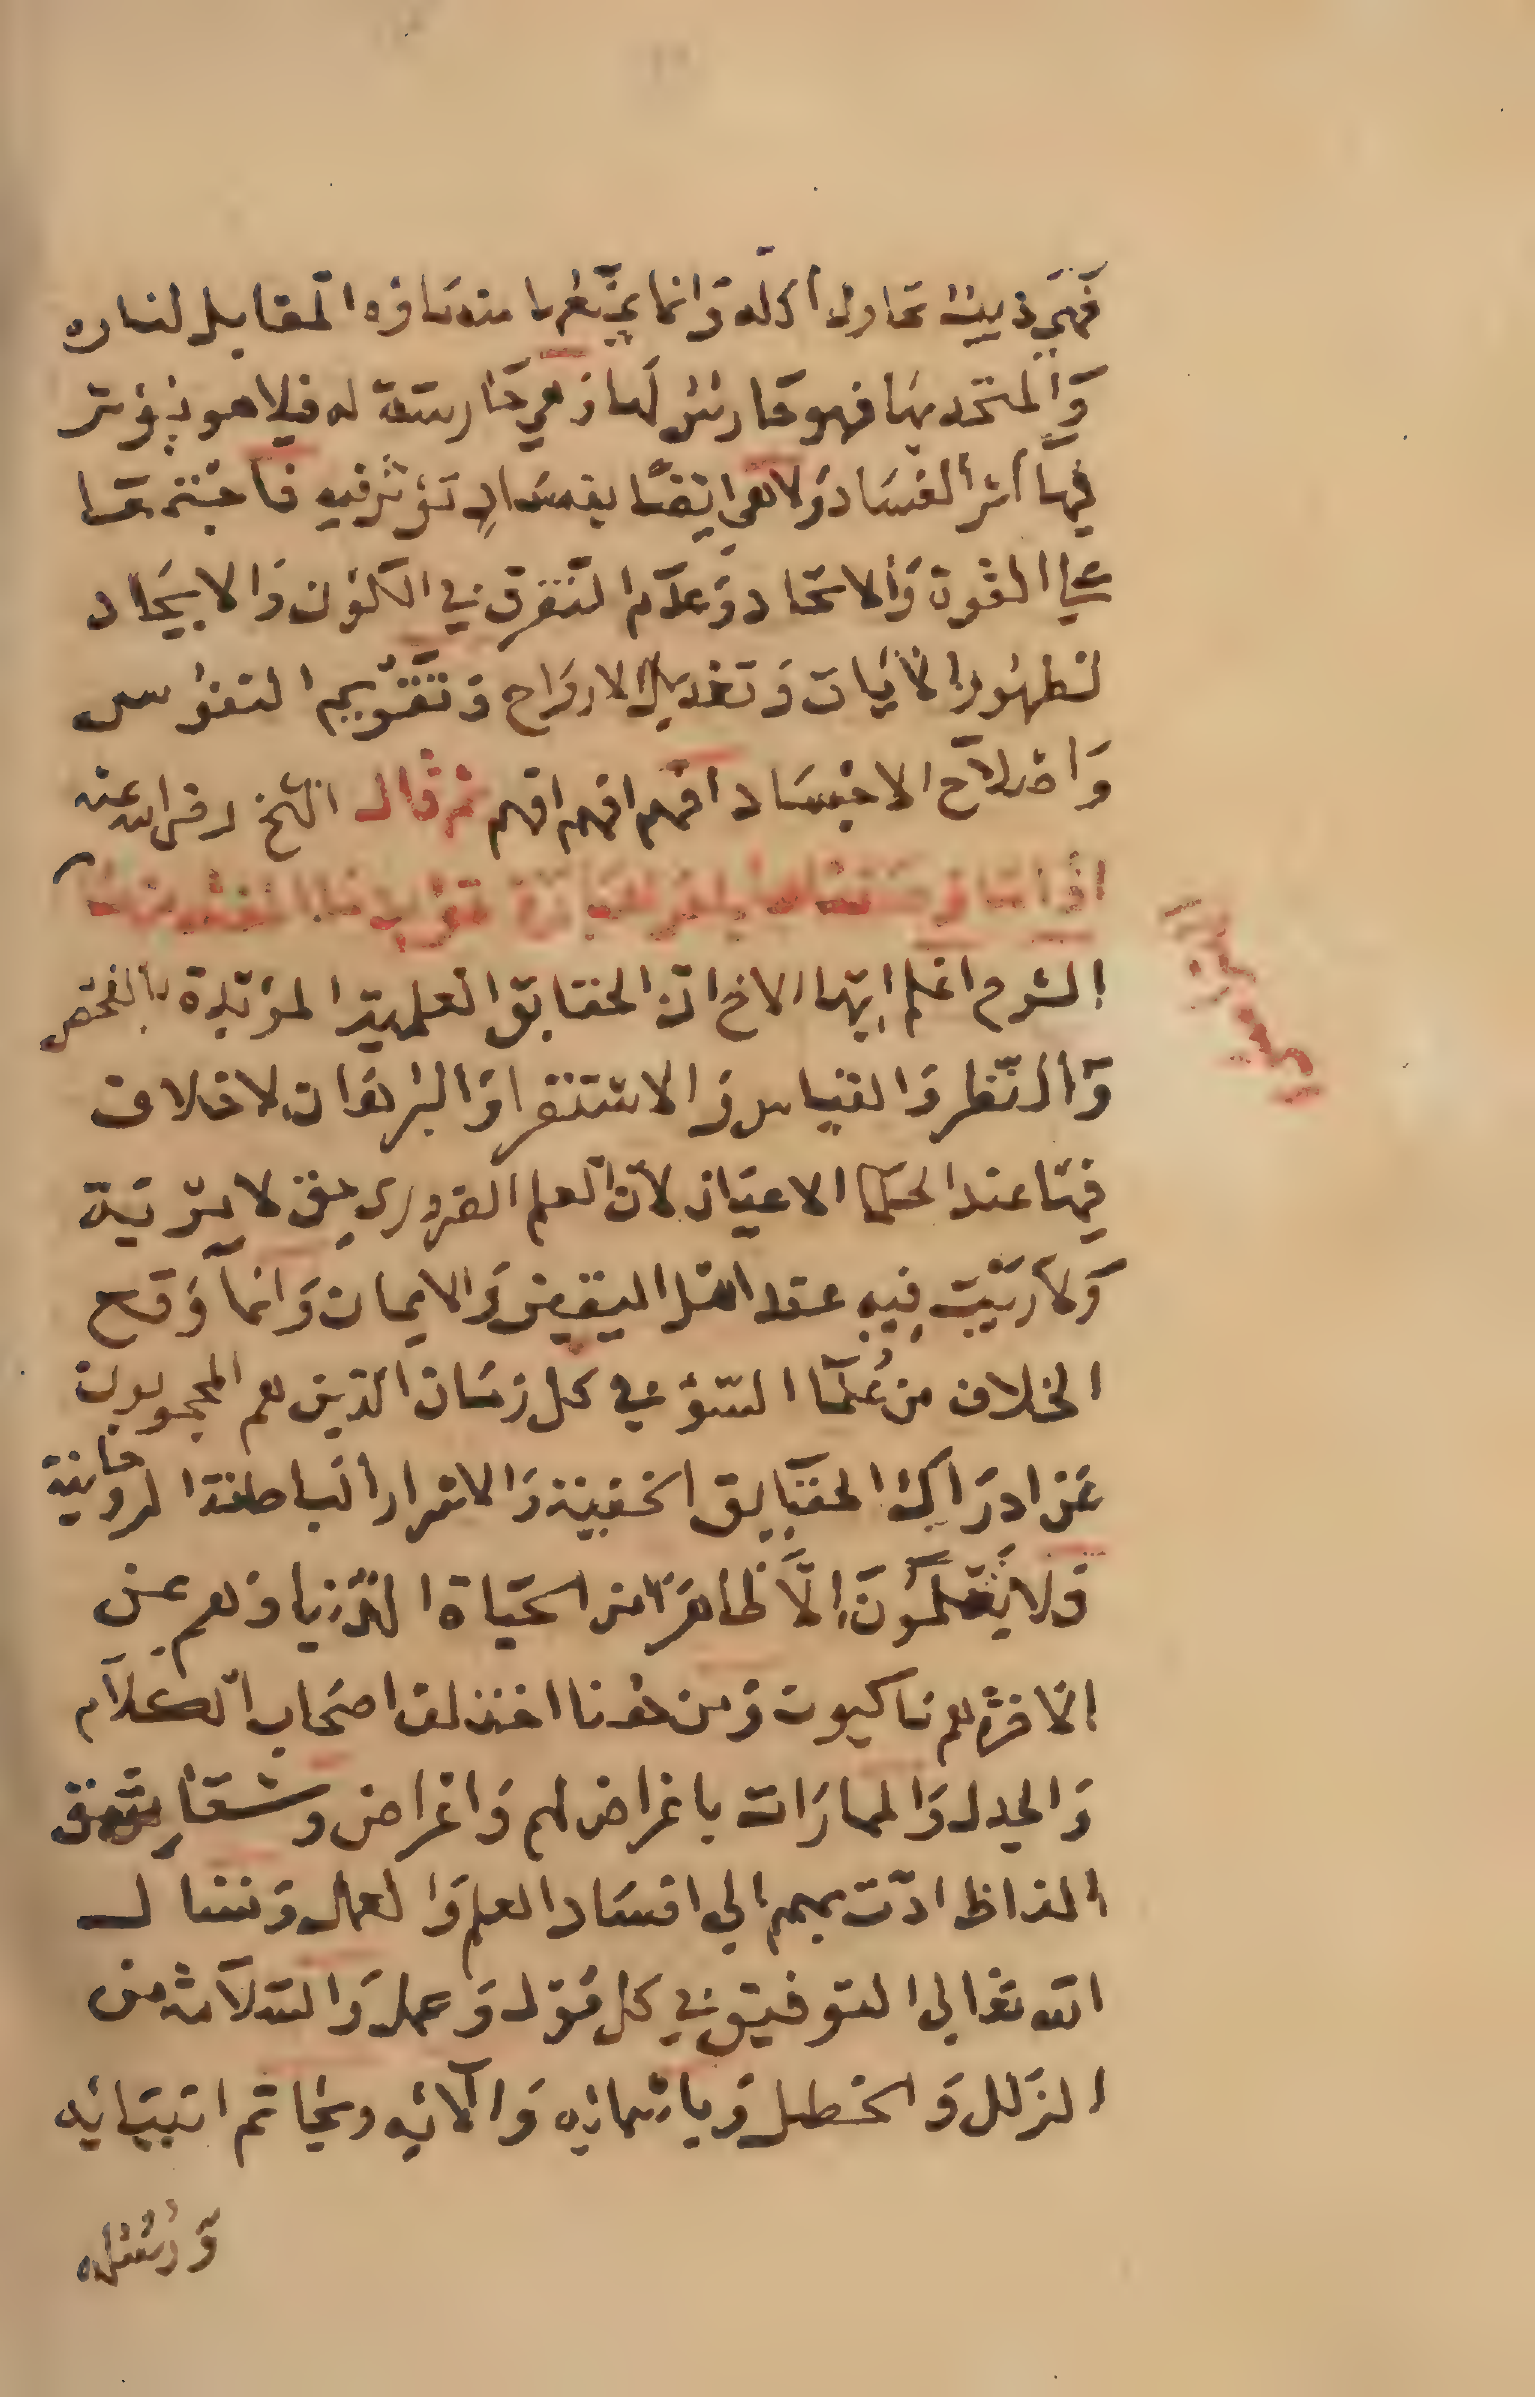 فهي ذيبت تحاول اكله وانما يمنعها منه ماؤه المقابل لناره
والمتحد بها فهو حارس لها وهي حارسة له فلا هو يؤثر
فيها اثر الفساد ولا هي ايضا بفساد تؤثر فيه فاجتمعا
علي القوة والاتحاد وعدم التفرق في الكون والايجاد
لظهور الايات وتعديل الارواح وتقويم النفوس
واصلاح الاجساد افهم افهم افهم ثم قال الشيخ رضي الله عنه
الشرح اعلم ايها الاخ ان الحقايق العلمية المؤيدة بالفحص
والنظر والقياس والاستقرا والبرهان لا خلاف
فيها عند الحكما الاعيان لان العلم الضروري حق لا مرية
ولا ريب فيه عند اهل اليقين والايمان وانما وقع
الخلاف من علما السؤ في كل زمان الذين هم المحجوبون
عن ادراك الحقايق الخفية والاسرار الباطنة الروحانية
ولا يعلمون الا ظاهرا من الحياة الدنيا وهم عن
الاخرة هم ناكبون ومن هنا اختلف اصحاب الكلام
والجدل والممارات باغراض لهم واعراض وشقاشق
الفاظ ادت بهم الي افساد العلم والعمل ونسال
الله تعالي التوفيق في كل قول وعمل والسلامة من
الزلل والخطل وباسمايه والايه وبخاتم انبيايه
ورسله